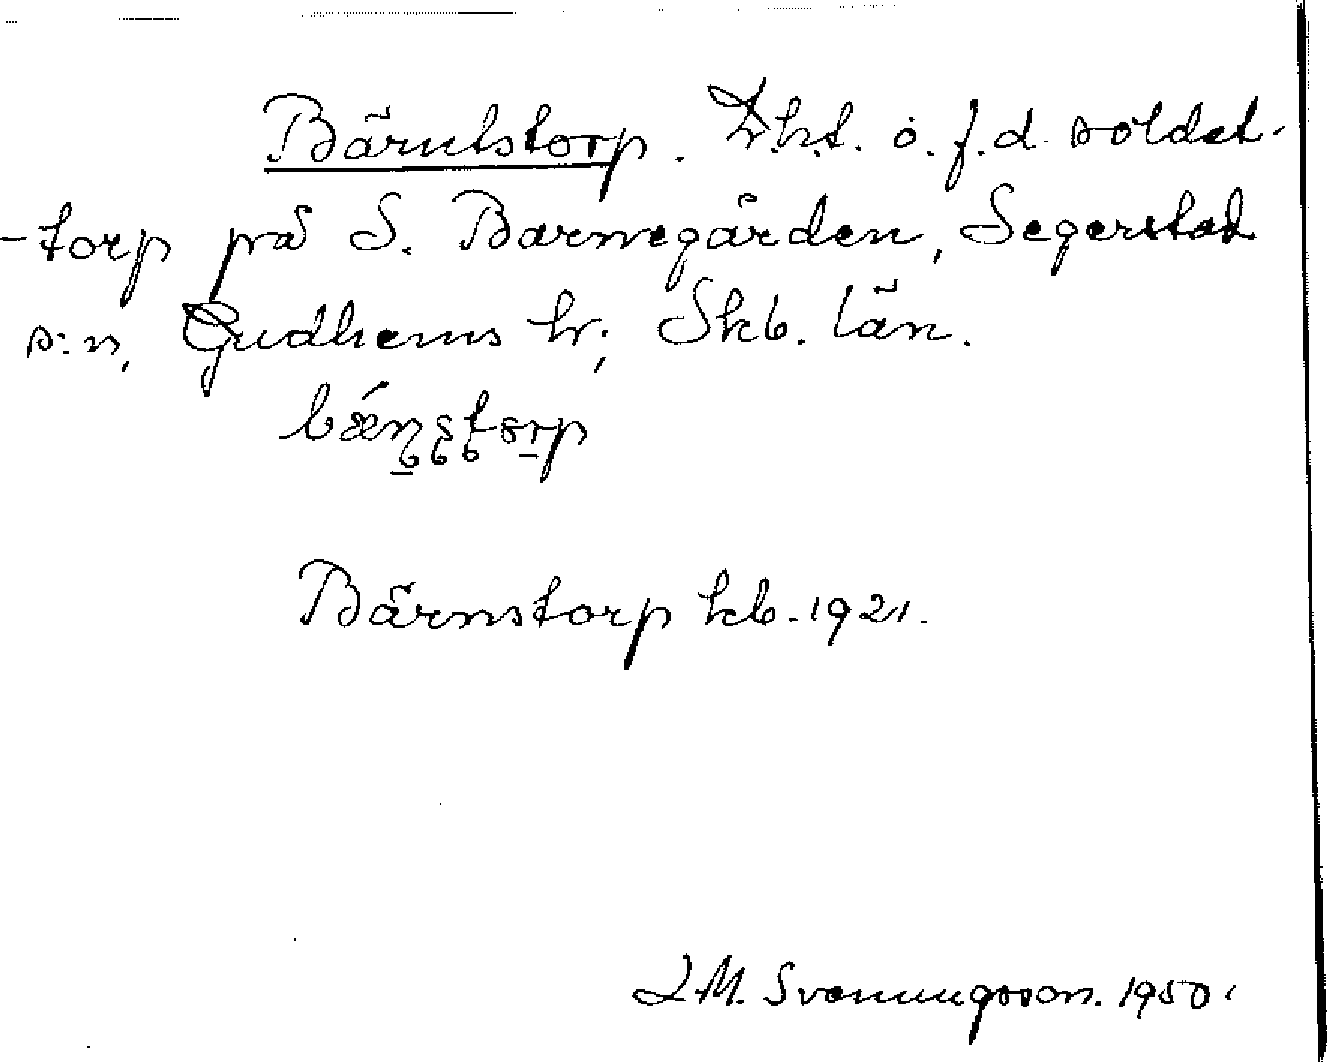 Bärntstorp. Lht. o. f.d. soldat-
-torp på S. Barnegården, Segerstad
s:n, Gudhems hr; Skb. län.
Bärnstorp kb. 1921.
L M. Svenungsson. 1950.